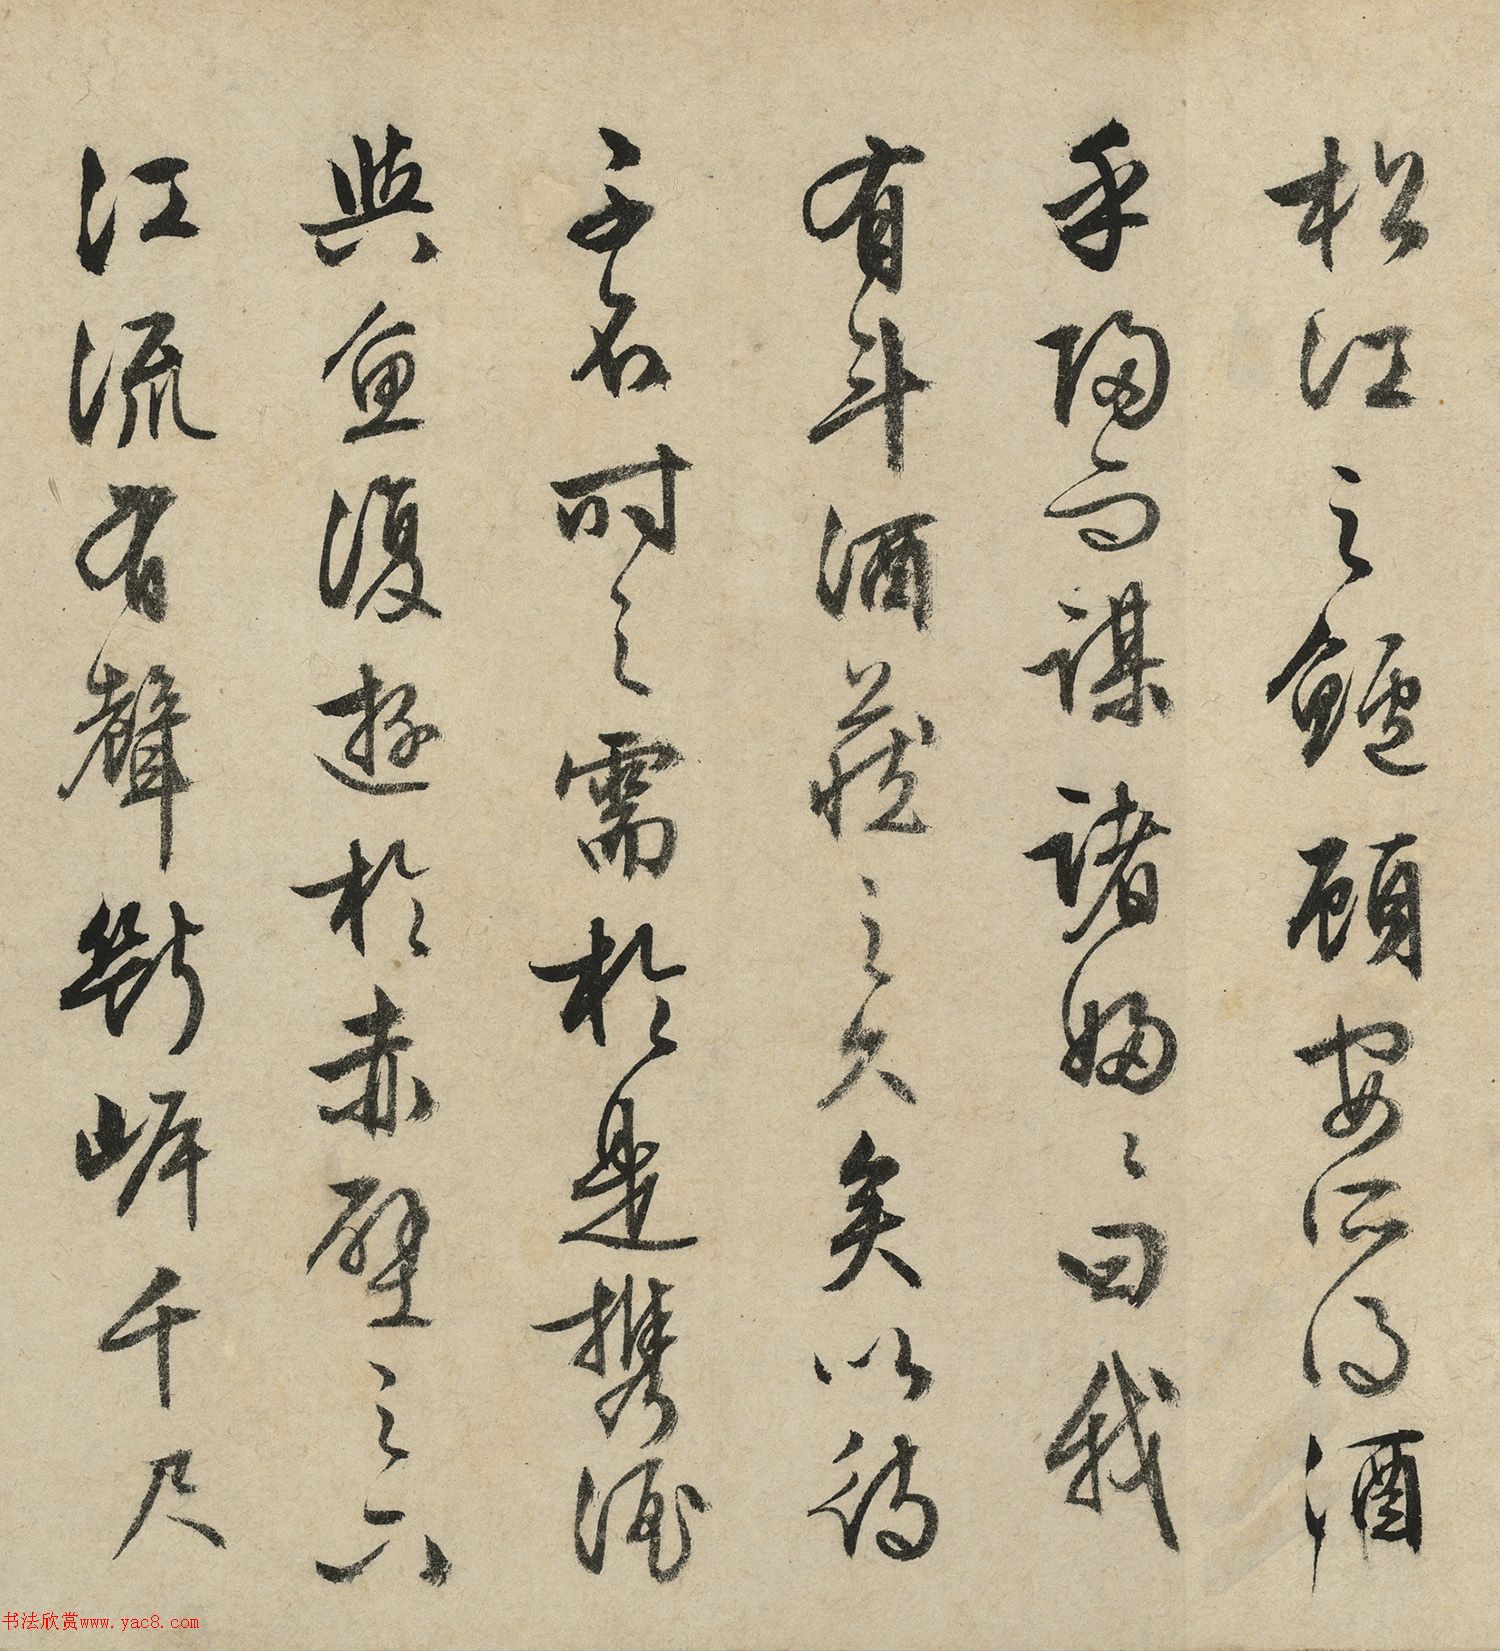 松江之鱸顧安所得酒
乎歸而謀諸婦〻曰我
有斗酒藏之久矣以待
子不時之需於是携酒
與魚復遊於赤壁之下
江流有聲斷岸千尺
书法欣赏www.yac8.com